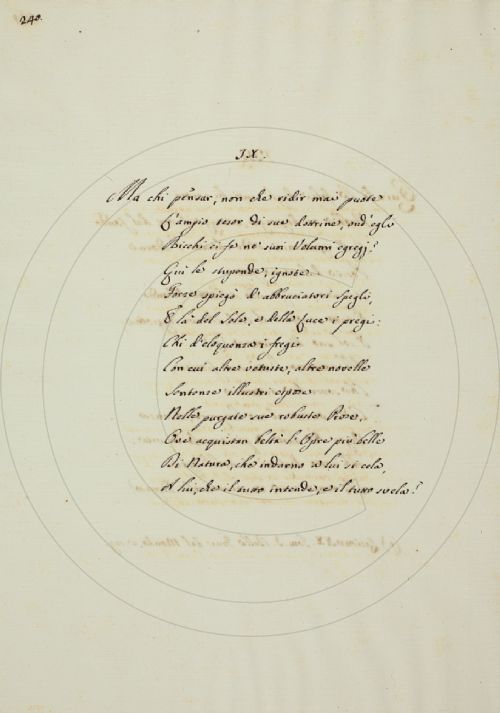 240.
IX.
Ma chi pensar, non che ridir mai puote
L'ampio tesor di sue dottrine, ond'egli
Ricchi ci fe ne' suoi Volumi egregj?
Qui le stupende, ignote
Forze spiegò d'abbruciatori spegli,
E là del Sole, e della Luce i pregi:
Chi d'eloquenza i fregi
Con cui altre vetuste, altre novelle
Sentenze illustri espose
Nelle purgate sue robuste Prose,
Ove acquistan beltà l'Opre più belle
Di Natura, che indarno a lui si cela,
A lui, che il tutto intende, e il tutto svela?